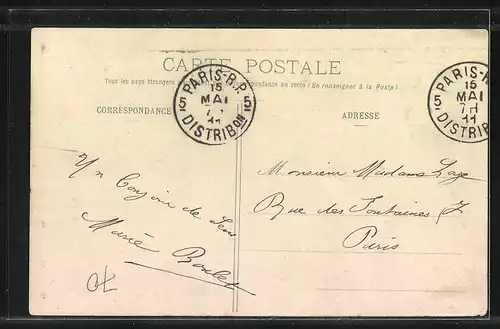 CARTE POSTALE
Tous les pays étrangers correspondance au recto (Se renseigner à la Poste)
CORRESPONDANCE
ADRESSE
PARIS-R.P.
5 15 5
MAI
11
DISTRIBON
PARIS-R.P.
5 15
MAI
7H
11
DISTRIBON
Un Bonjour de
Marie
Monsieur Madame
Rue des Fontaines 7
Paris